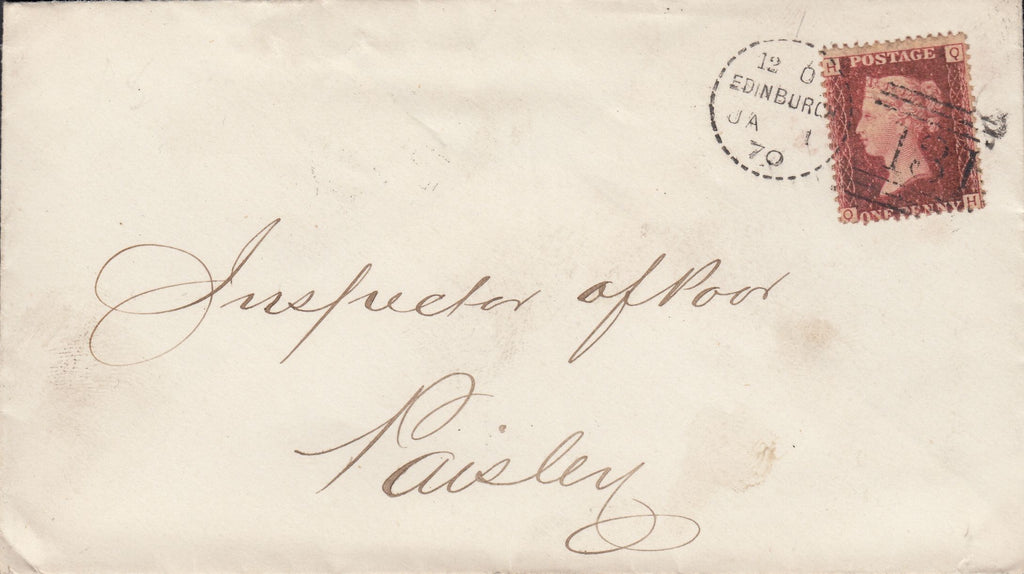 12 O
EDINBURG
JA 1
70
H POSTAGE Q
131
Q ONE PENNY H
Inspector of Poor
Paisley